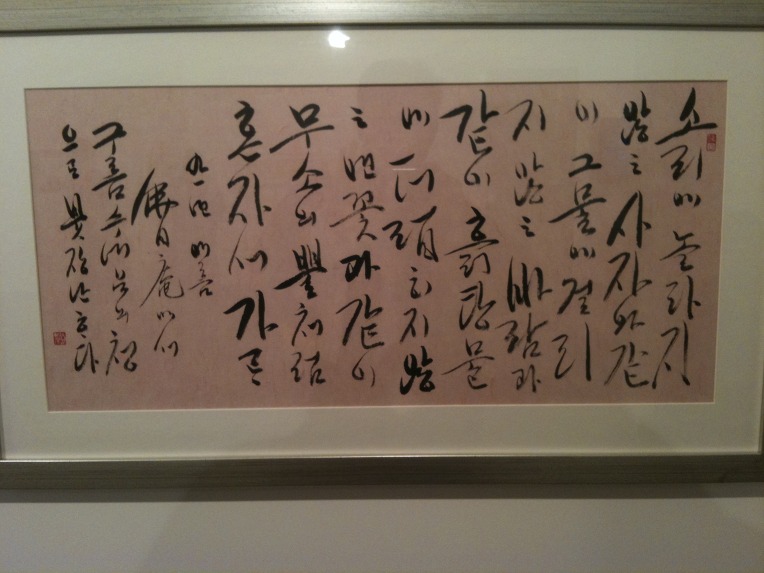 소리에 놀라지
않는 사자와 같
이 그물에 걸리
지 않는 바람과
같이 흙탕물
에 더럽히지 않
는 연꽃과 같이
무소의 뿔처럼
혼자서
여름
佛日庵에서
구름
으로